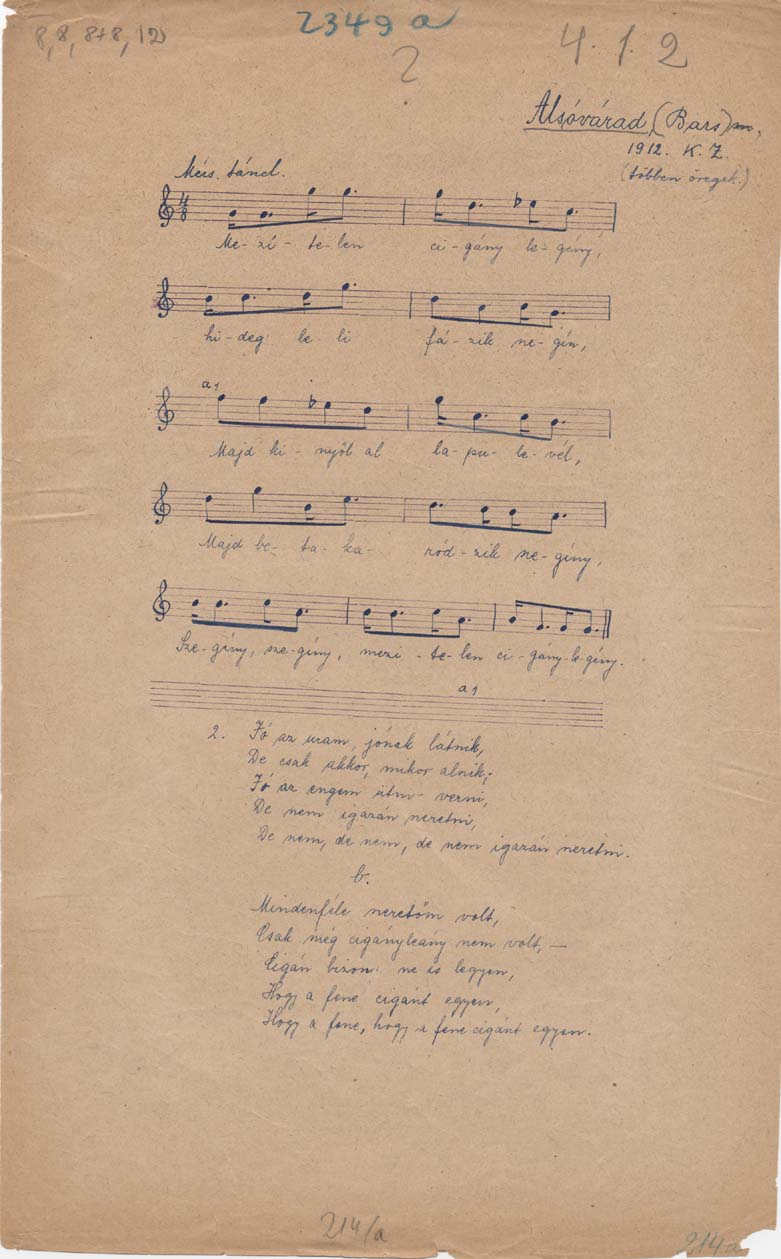 8, 8, 8+8, 12)
2349 a
2
4. 1. 2
Alsóvárad, (Bars)
1912. K. Z.
(többen öregek.)
Mérs. táncl.
4
8
Me-zí-te-len ci-gány le-gény,
hi-deg le li fá-zik sze-gín,
a1
Majd ki-nyől al la-pu-le-vél,
Majd be-ta-ka-ród-zik sze-gíny,
Sze-gíny, sze-gíny, mezí-te-len ci-gány-le-gény.
a1
2. Jó az uram, jónak látnik,
De csak akkor, mikor alnik;
Jó az engem ütni- verni,
De nem igazán szeretni,
De nem, de nem, de nem igazán szeretni.
b.
Mindenféle szeretőm volt,
Csak még cigányleány nem volt, —
Cigán bizon: ne is legyen,
Hogy a fene cigánt egyen,
Hogy a fene, hogy a fene cigánt egyen.
214/a
214a